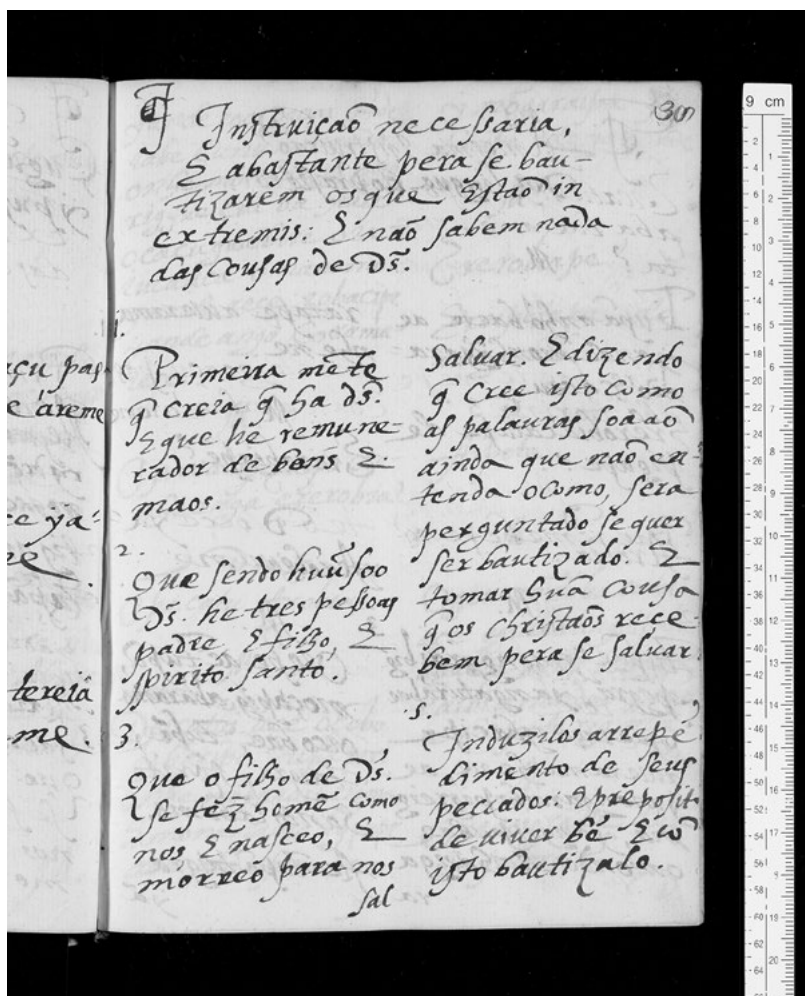 30
¶ Instruiçaõ necessaria,
E abastante pera se bau-
tizarem os que Estaõ in
extremis: E naõ sabem nada
das Cousas de Ds̃.
1.
Primeira mẽte
q̃ Creia q̃ ha ds̃.
E que he remune-
rador de bons E
maos.
2.
Que sendo huũ soo
Ds̃. he tres pessoas
padre, E filho, E
spirito santo.
3.
Que o filho de Ds̃.
se fez homẽ como
nos E nasceo, E
morreo para nos
sal
Saluar. E dizendo
q̃ Cree isto como
as palauras soaõ
ainda que naõ en-
tenda o como, sera
perguntado se quer
ser bautizado. E
tomar huã cousa
q̃ os christaõs rece-
bem pera se saluar.
5.
Induzilos arrepẽ
dimento de seus
peccados: E preposit
de viuer bẽ E cõ
isto bautizalo.
açu pas
e áreme
ce ya-
tereiã
me.
9 cm